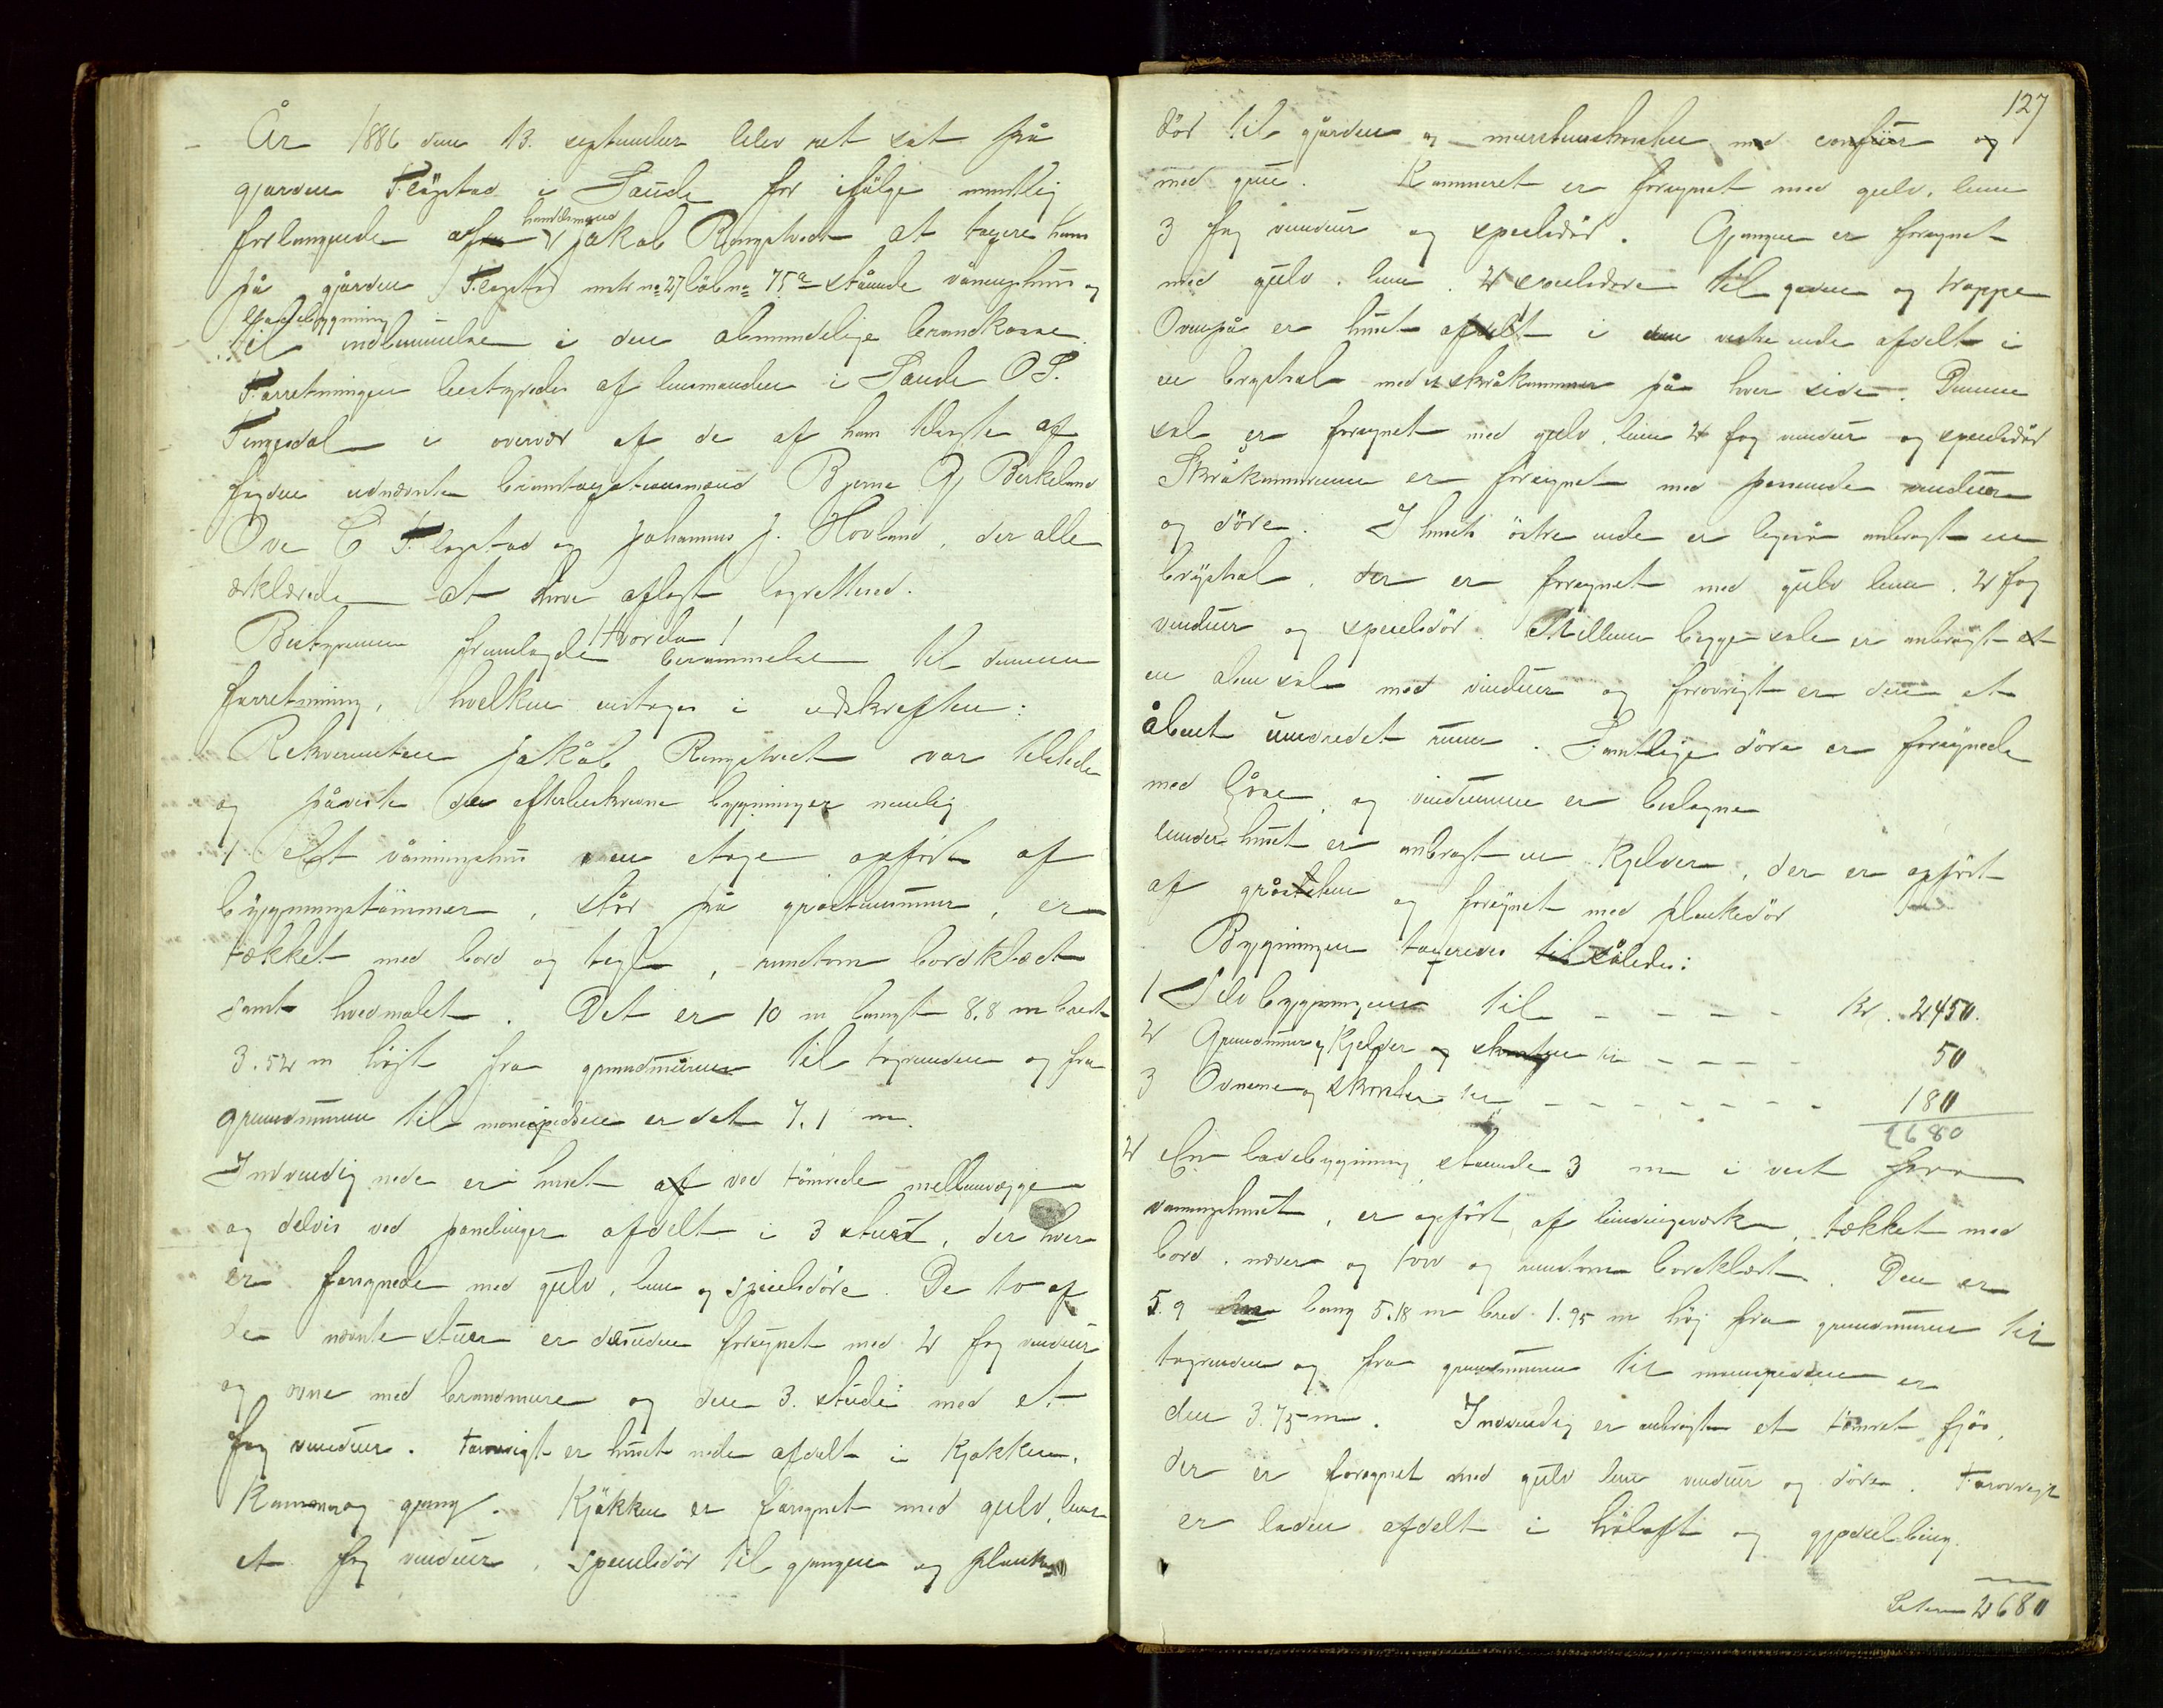 År 1886 den 13. september blev ret sat på
gjarden Fløgstad i Saude for ifølge mundtlig
forlangende af handlsmand Jakob Ringstvedt at taxere hans
på gjården Fløgstad matr no 27 løbno 75a stående våningshus og
ladebygning
til indlemmelse i den almindelige brandkasse.
Forretningen bestyredes af lensmanden i Saude O S.
Tengesdal i overvær af de af ham tilsagte af
fogden udnævnte brandtaxstionsmænd Bjerne G Birkeland
Ove E Fløgstad og Johannes J. Hovland, der alle
erklærede at have aflagt lagrettesed.
Bestyreren fremlagde (Hvorda) berammelse til denne
forretning, hvelken indtages i udskriften:
Rekvirenten Jakob Ringstvedt var tilstede
og påviste de efterbeskrevne bygninger nemlig
1 Et våningshus en etage opført af
bygningstømmer, står på gråstensmur, er
tækket med bord og tegl, rundtom bordklædt
samt hvidmalet. Det er 10 m langt 8.8 m bredt
3.52 m højt fra grundmuren til tagrenden og fra
grundmuren til mønespidsen er det 7.1 m.
Indvendig nede er huset af ved tømrede mellemvægge
og delvis ved panelinger afdelt i 3 stuer, der hver
er forsynede med gulv, lem og speilsdøre. De to af
de nævnte stuer er desuden forsynet med 2 fag vinduer
og ovne med brandmure og den 3. stue med et
fag vinduer. Forøvrigt er huset nede afdelt i Kjøkken,
Kammer og gang. Kjøkken er forsynet med gulv, lem
et fag vinduer, speilsdør til gangen og planke
127
dør til gården og murstensskorsten med comfur og
med grue. Kammeret er forsynet med gulv, lem
3 fag vinduer og speilsdør. Gangen er forsynet
med gulv, lem, 2 speilsdøre til gaden og trappe
Ovenpå er huset afdelt i den vestre ende afdelt i
en brystsal med et skråkammer på hver side. Denne
sal er forsynet med gulv, lem 2 fag vinduer og speilsdør
Skråkammerene er forsynet med passende vinduer
og døre. I husets østre ende er ligeså anbragt en
brystsal, der er forsynet med gulv lem, 2 fag
vinduer og speilsdør. Mellem begge sale er anbragt et
en sal med vinduer og forøvrigt er den et
åbent uindredet rum. Samtlige døre er forsynede
med låse, og vinduerne er beslagne
under huset er anbragt en Kjelder, der er opført
af gråsten og forsynet med plankedør
Bygningen taxeredes til således:
1 Selv bygningen til - - - - - Kr. 2450.
2 Grundmur og Kjelder og skorsten til - - - - 50
3 Ovnene og skorsten til - - - - - - - 180
2680
2 En ladebygning stående 3 m i vest fra
vaningshuset, er opført af bindingsverk, tækket med
bord, næver og torv og rundtom bordklædt. Den er
5.9 m lang 5.18 m bred 1.95 m høj fra grundmuren til
tagrenden og fra grundmuren til mønespidsen er
den 3.75 m. Indvendig er anbragt et tømret fjøs,
der er forsynet med gulv lem vinduer og døre. Forøvrigt
er laden afdelt i høloft og gjødselbing.
Latus 2680